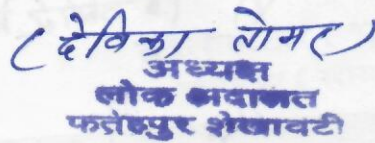 (देविका तोमर)
अध्यक्ष
लोक अदालत
फतेहपुर शेखावटी